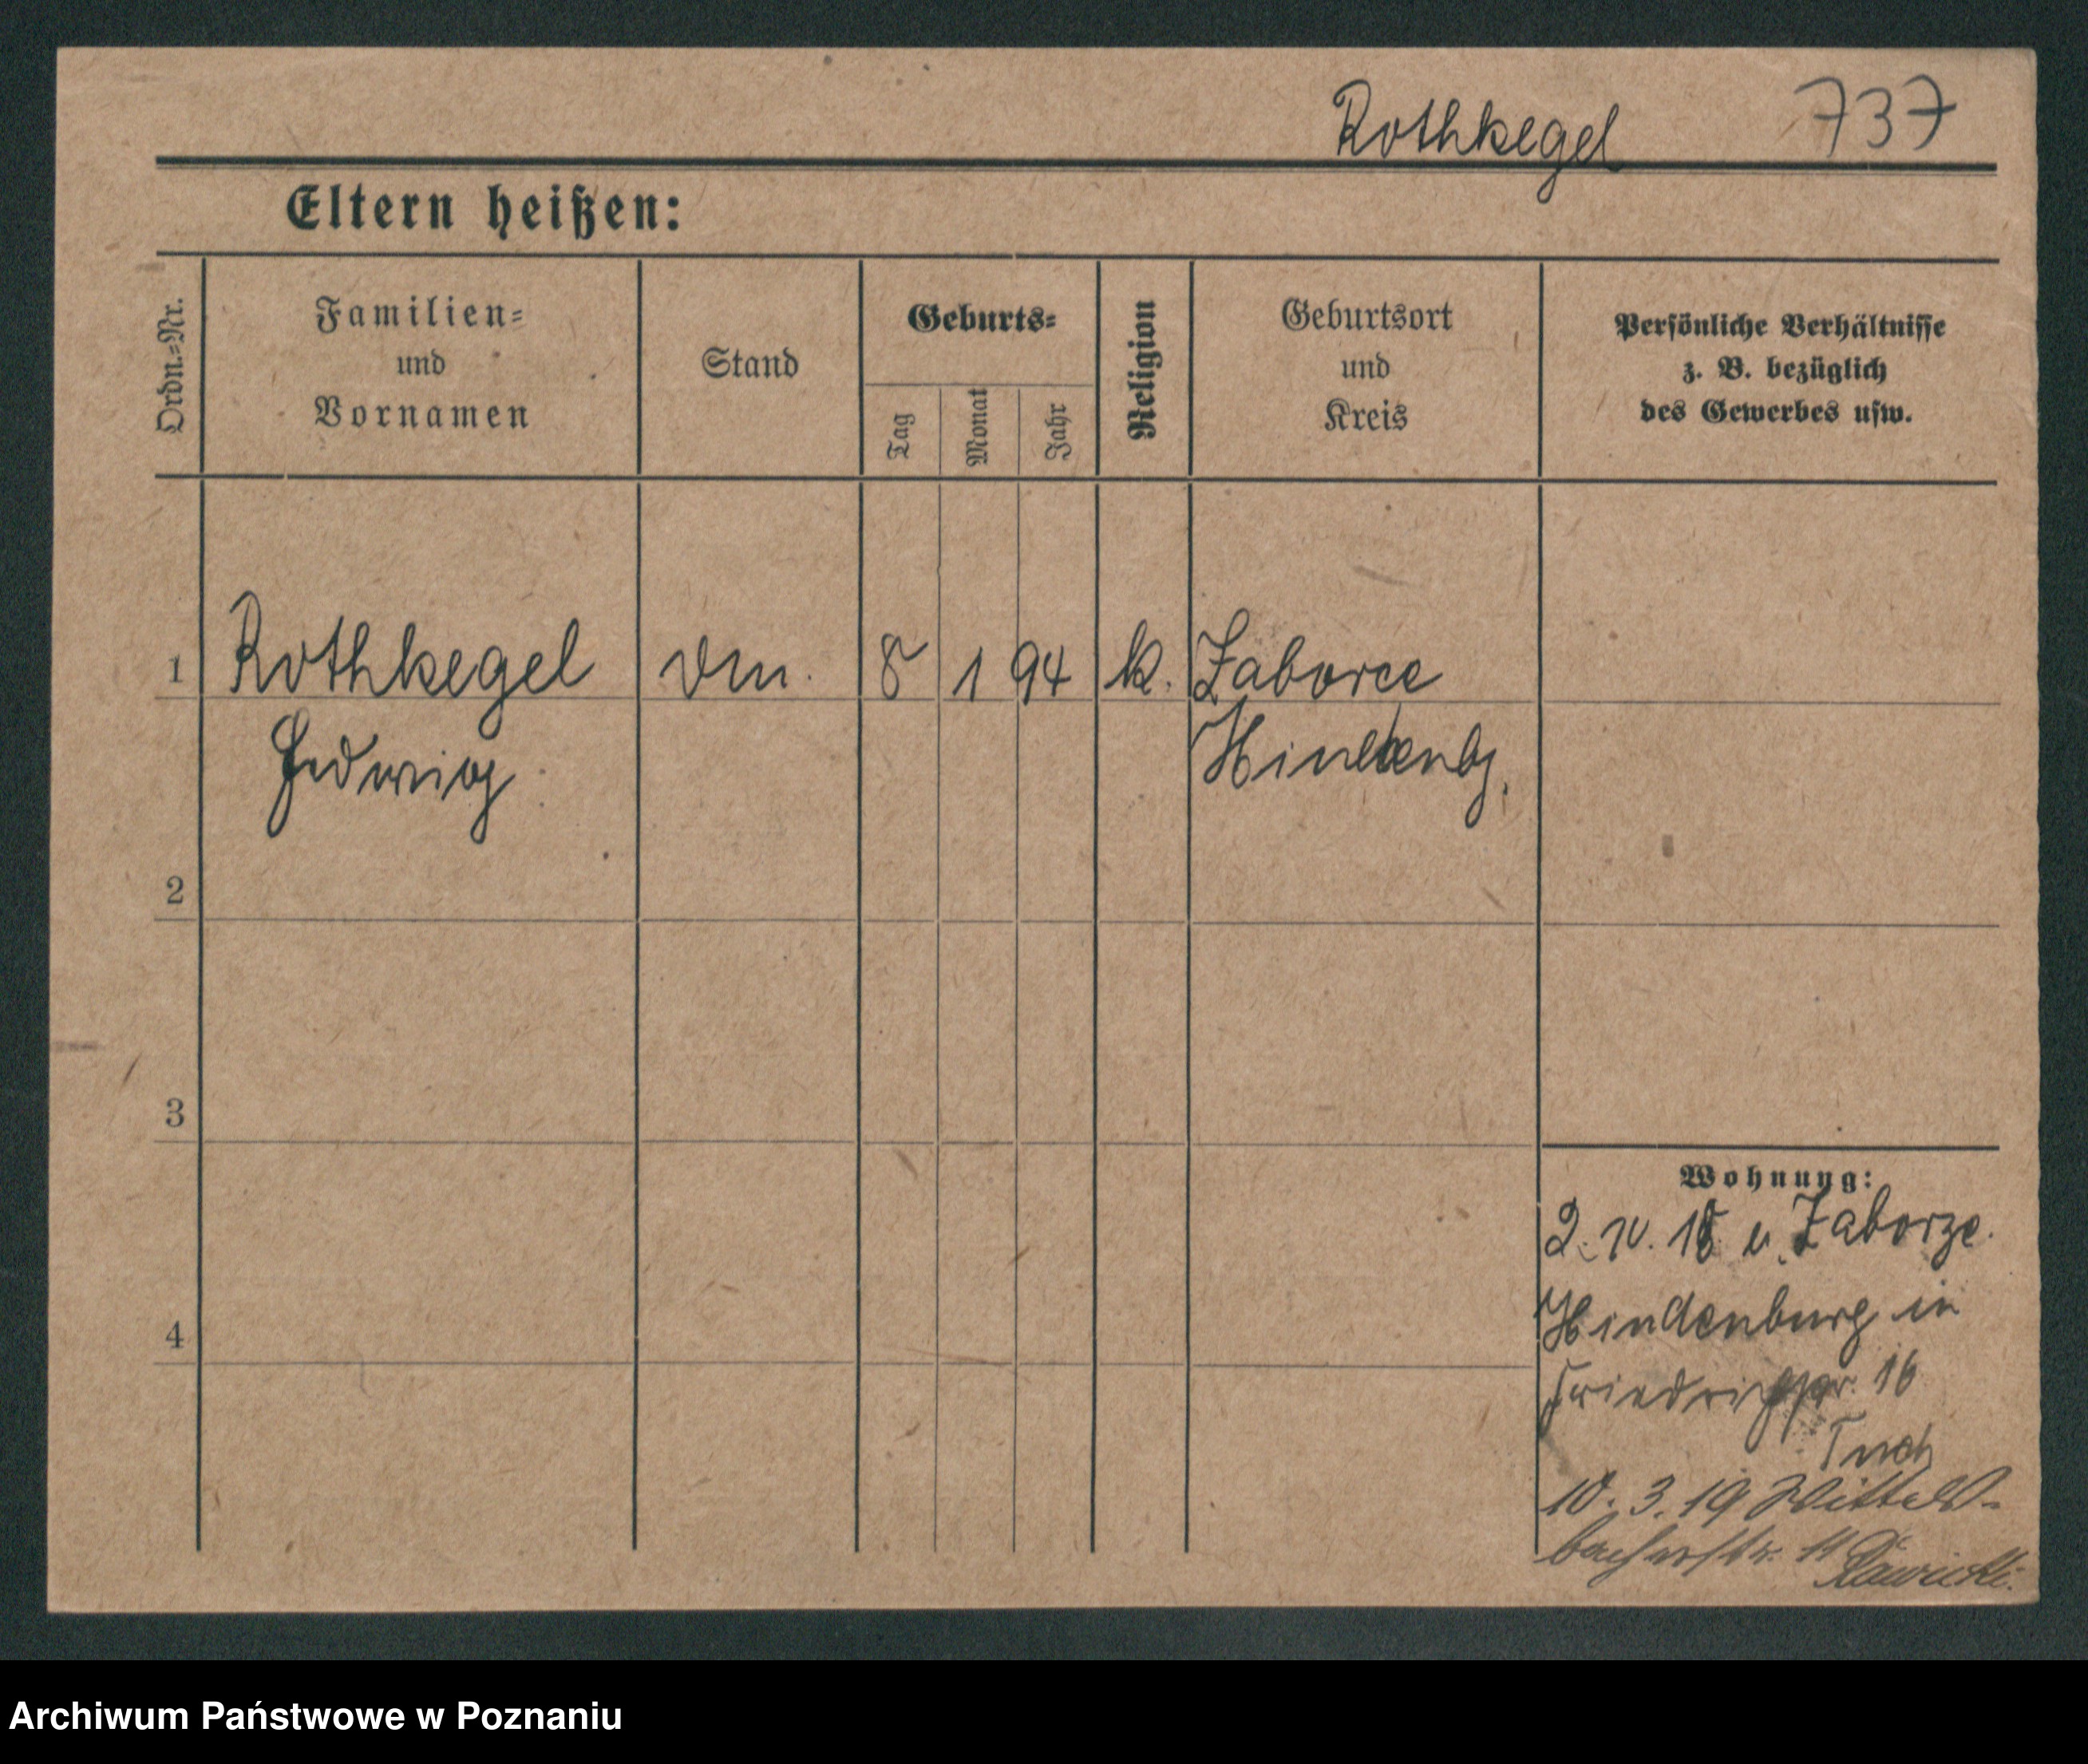 Rothkegel 737
Eltern heißen:
Ordn.-Nr.
Familien-
und
Vornamen
Stand
Geburts-
Tag
Monat
Jahr
Religion
Geburtsort
und
Kreis
Persönliche Verhältnisse
z. B. bezüglich
des Gewerbes usw.
1 Rothkegel 8 1 94 k. Zaborce
Hedwig Hindenbg.
2
3
4
Wohnung:
2. 10. 18 Zaborze
Hindenburg in
16
10. 3. 19 Wittels-
bacherstr. 11
Archiwum Państwowe w Poznaniu